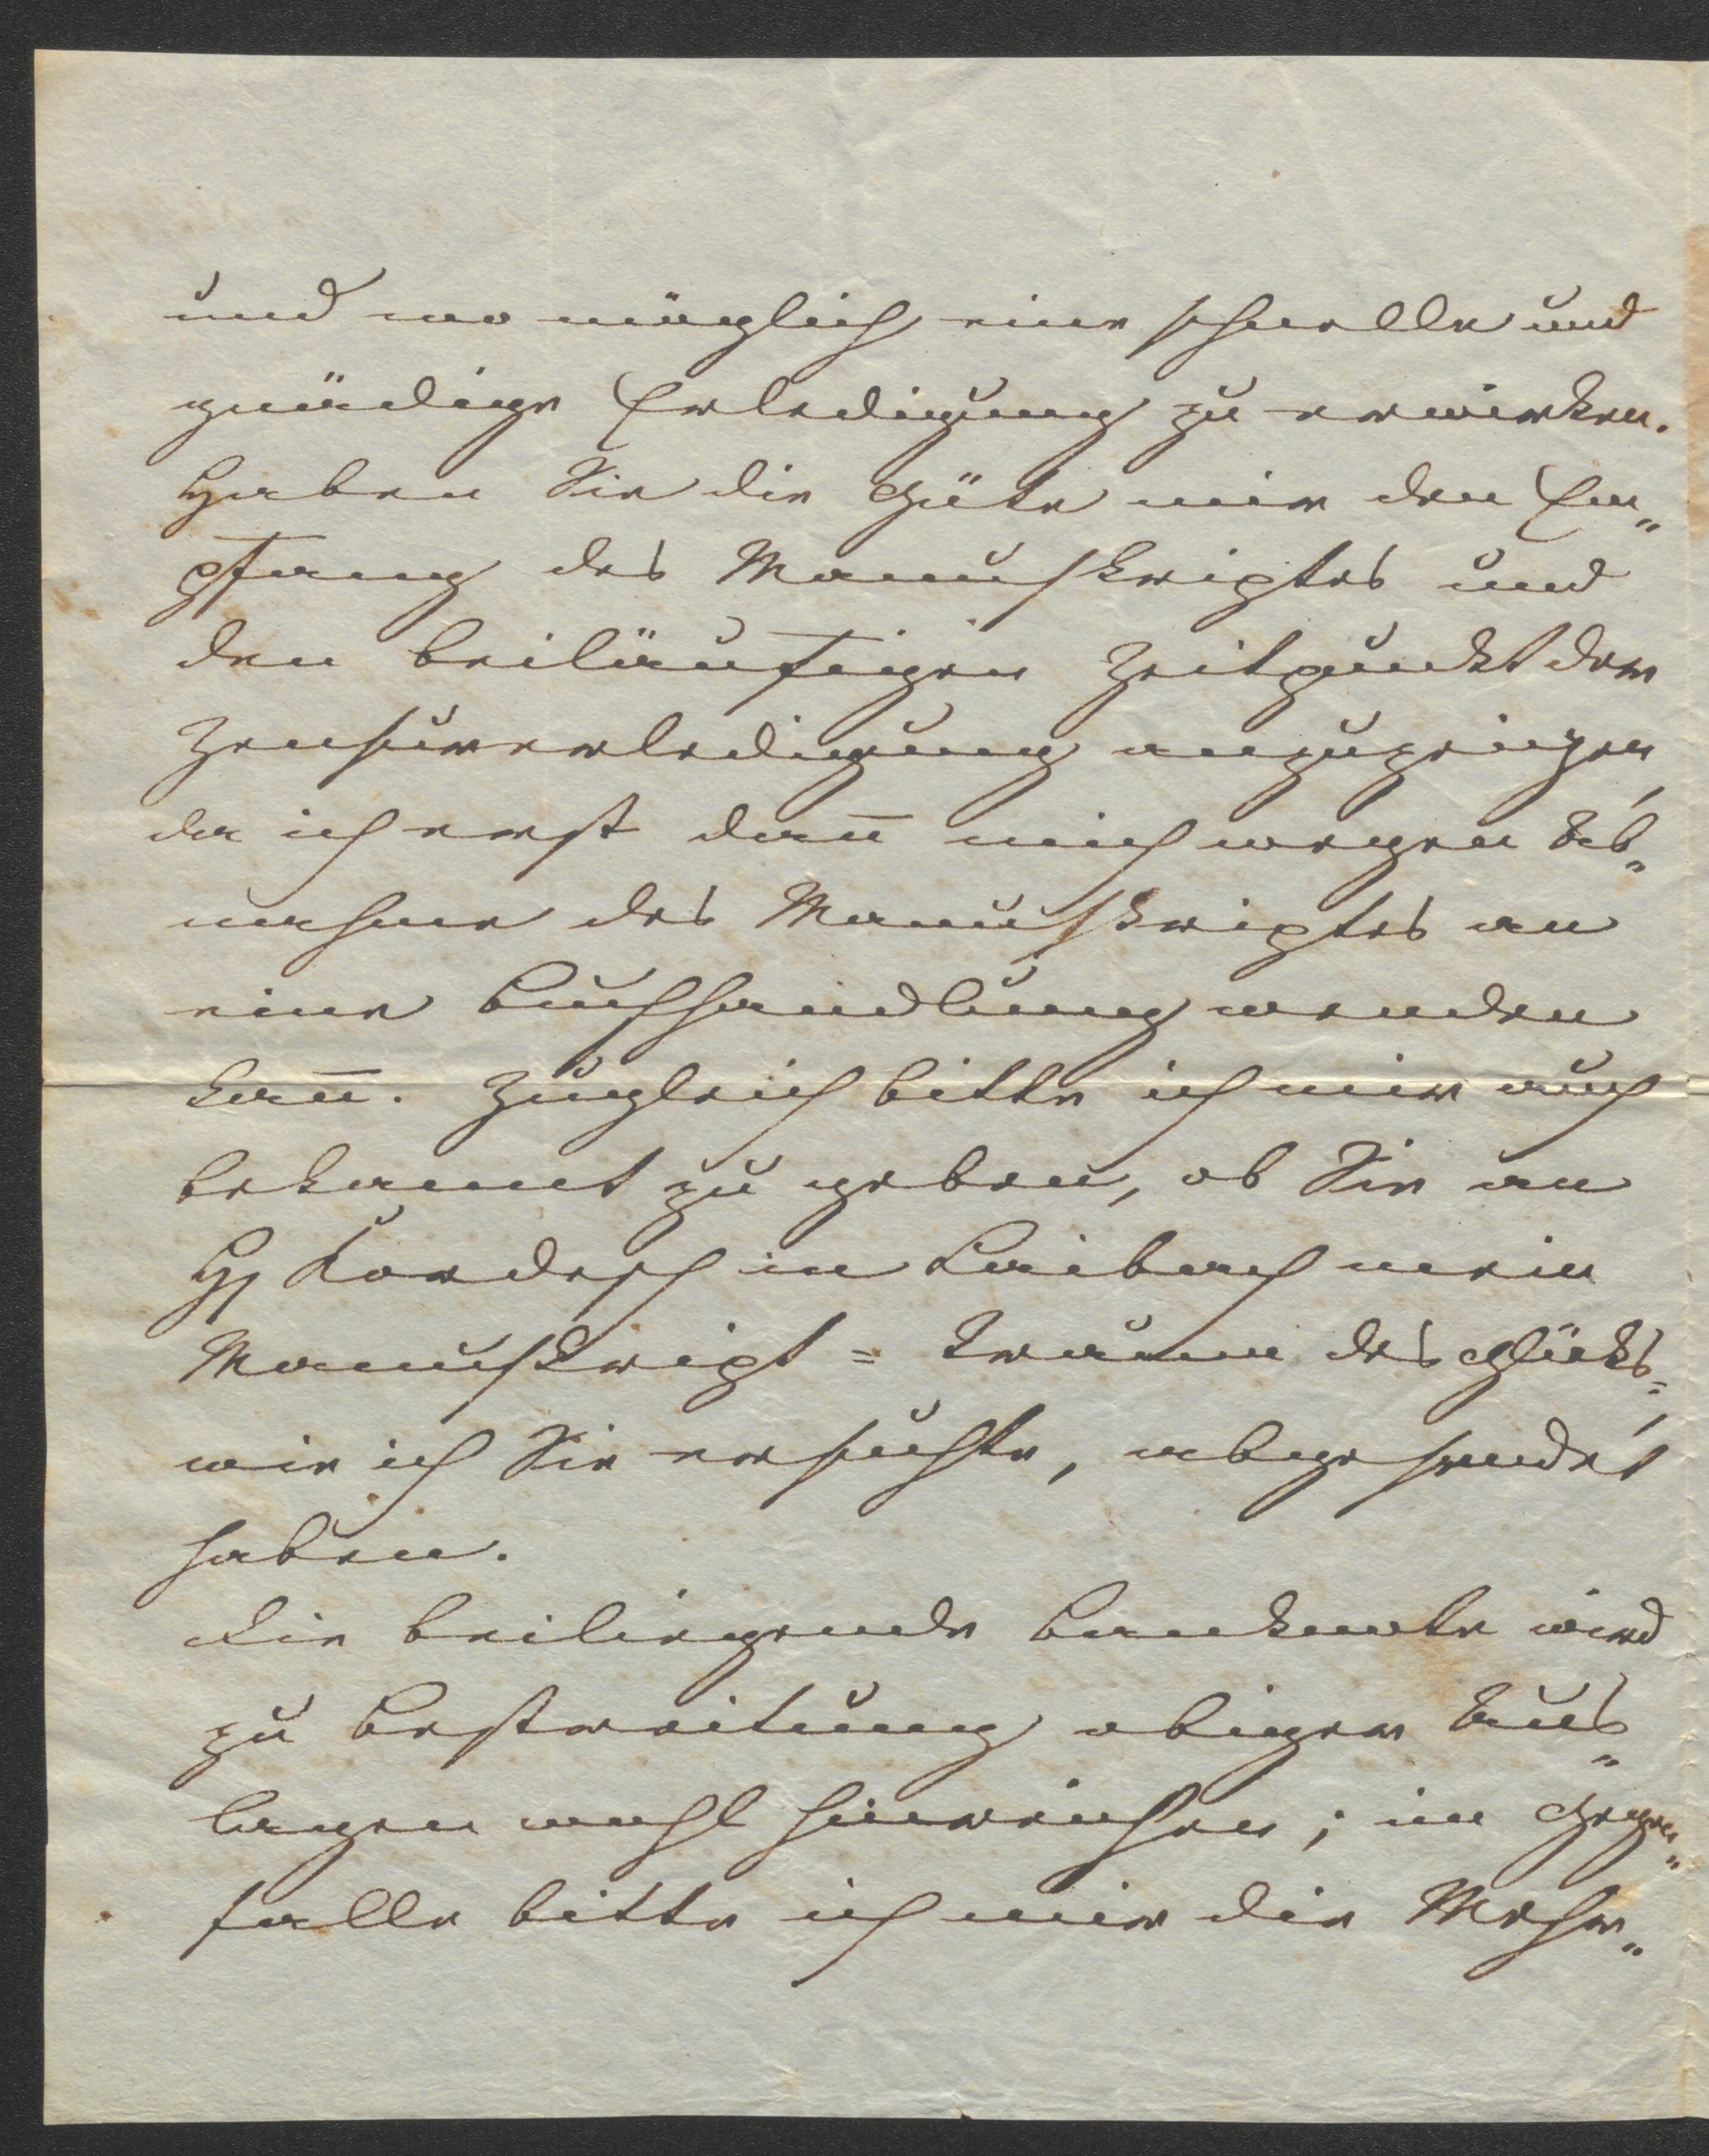 und wo möglich eine schnelle und
gnädige Erledigung zu erwirken.
Haben Sie die Güte mir den Em„
pfang des Manuskriptes und
den beiläufigen Zeitpunkt der
Zensurerledigung anzuzeigen,
da ich erst dan̄ mich wegen Ab„
nahme des Manuskriptes an
eine Buchhandlung wenden
kan̄. Zugleich bitte ich mir auch
bekannt zu geben, ob Sie an
H Kordesch in Laibach mein
Manuskript = Träume des Glücks =,
wie ich Sie ersuchte, abgesendet
haben.
Die beiliegende Banknote wird
zu Bestreitung obiger Aus„
lagen wohl hinreichen; im Gegen„
falle bitte ich mir die Mehr„